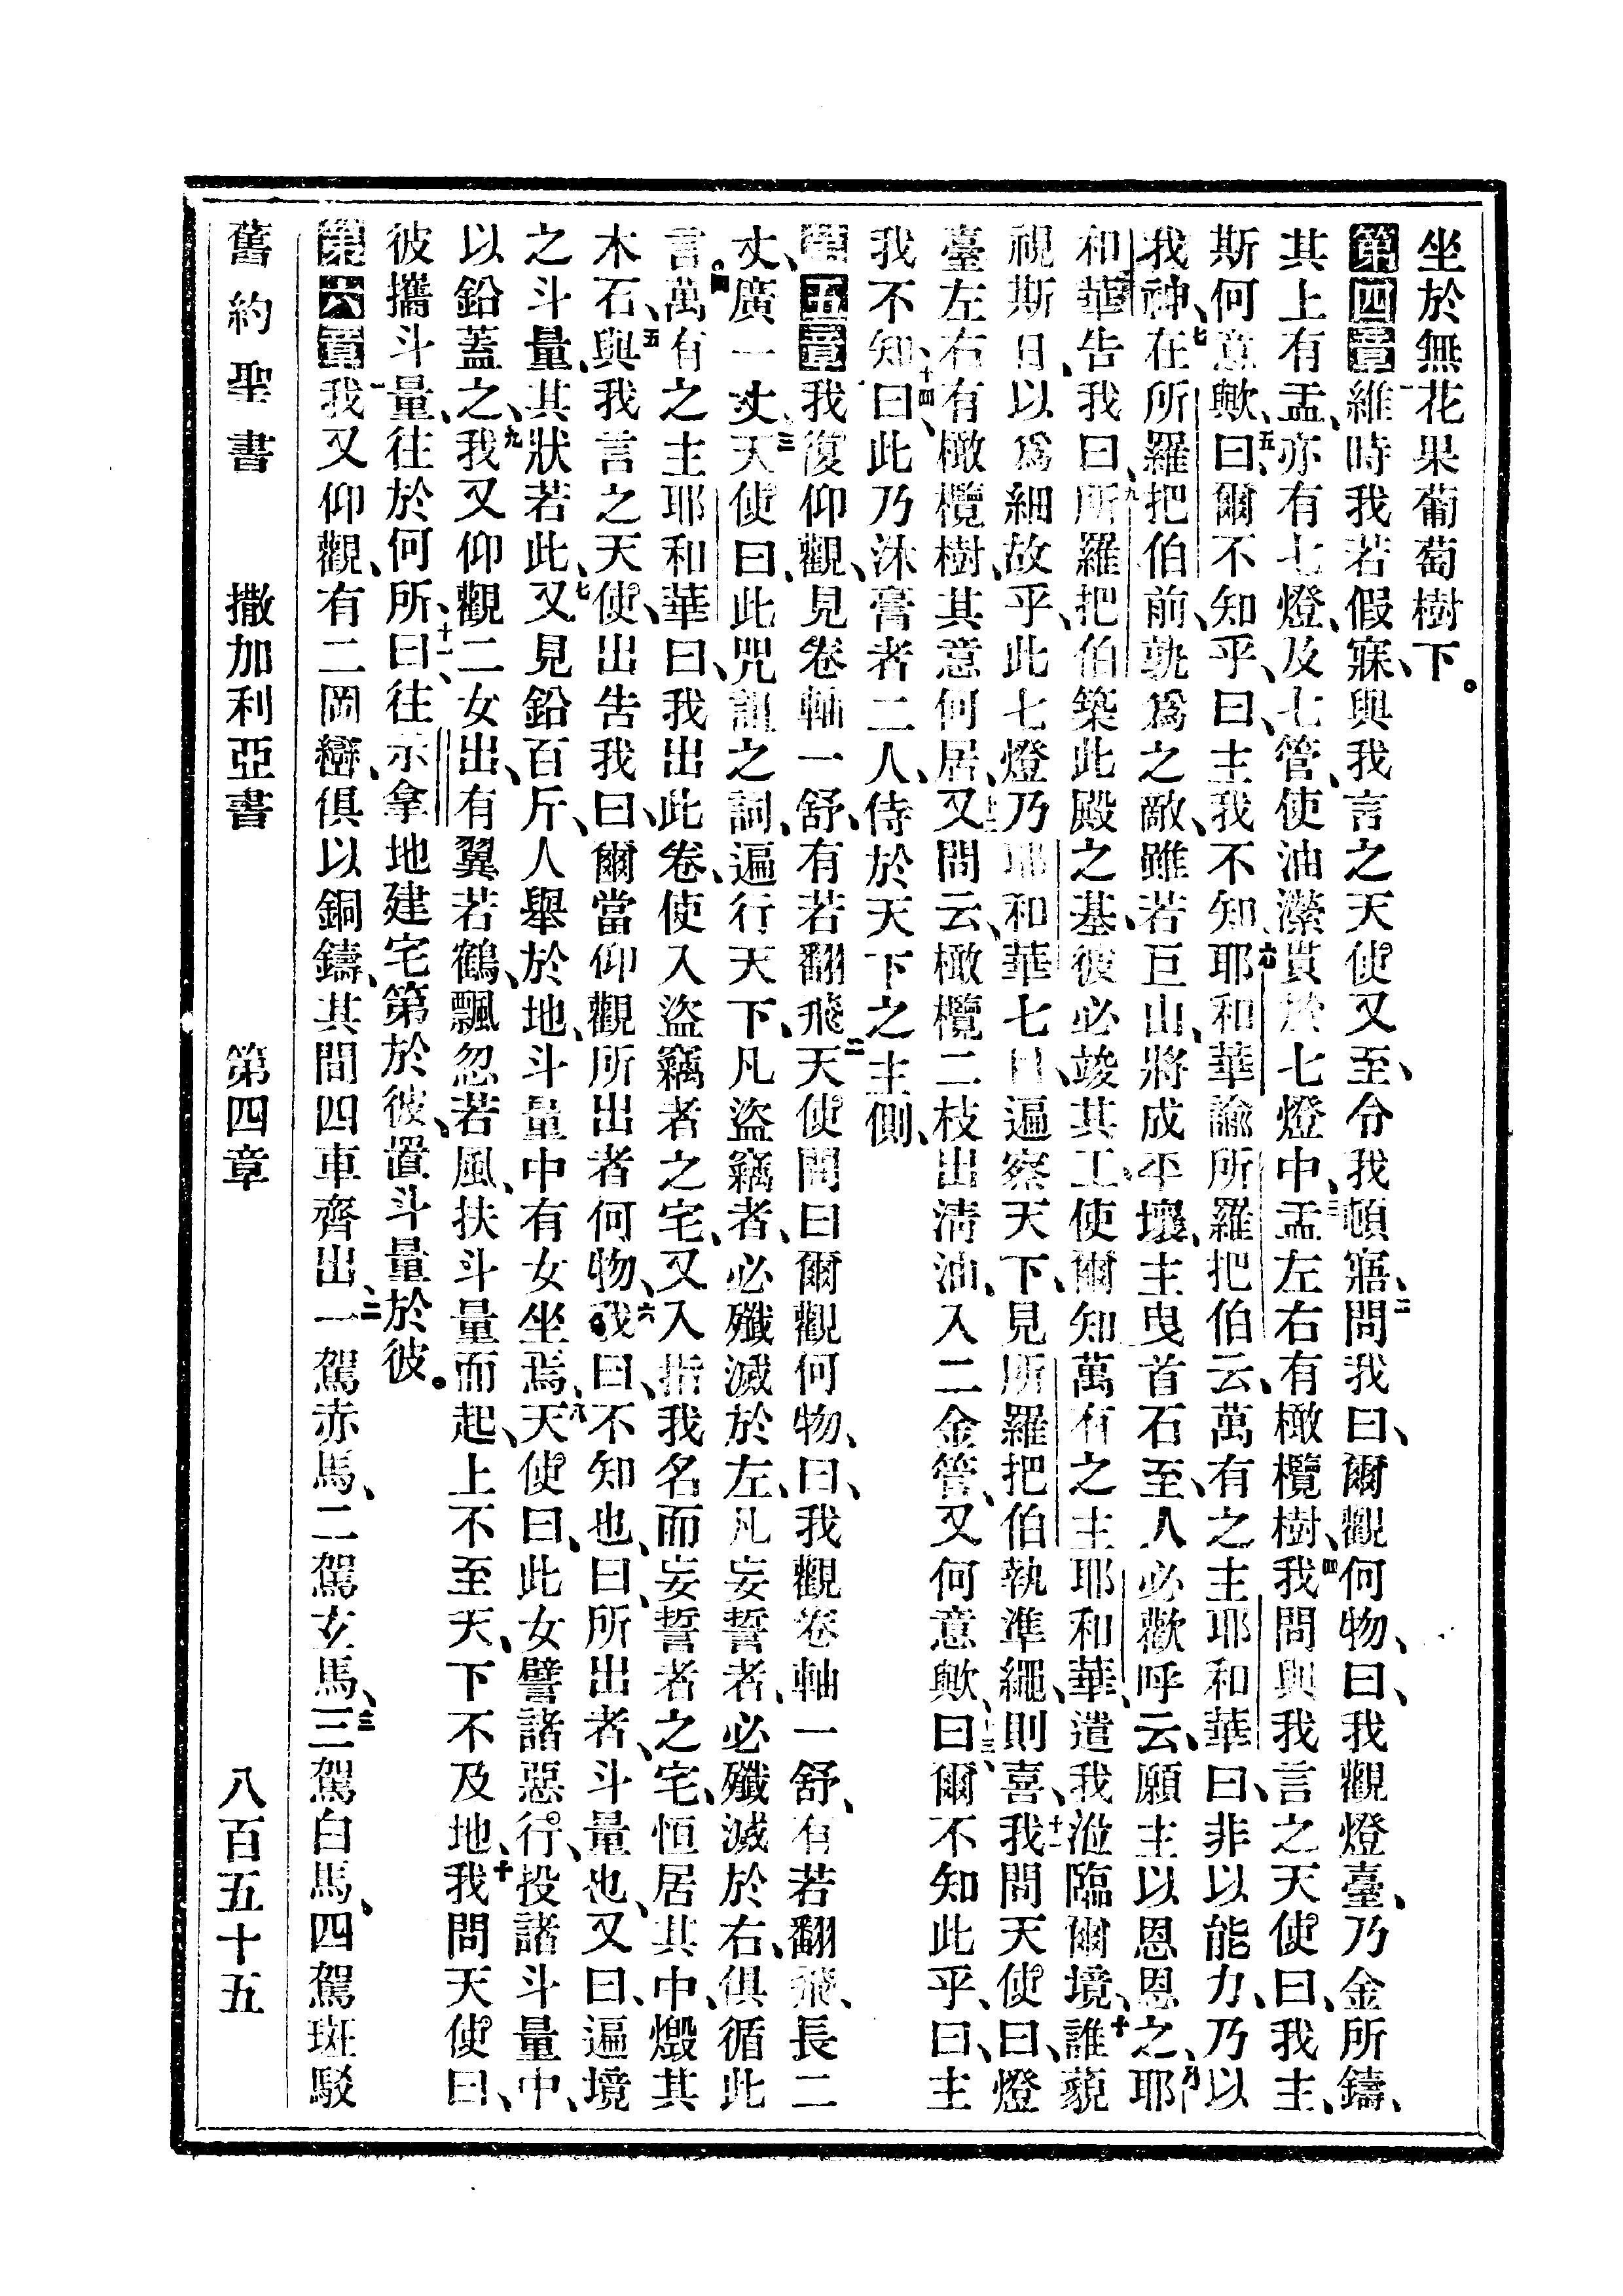 坐於無花果葡萄樹下。
第四章一維時我若假寐、與我言之天使又至、令我頓寤、二問我曰、爾觀何物、曰、我觀燈臺、乃金所鑄、
其上有盂、亦有七燈、及七管、使油瀠貫於七燈中、三盂左右有橄欖樹、四我問與我言之天使曰、我主、
斯何意歟、五曰、爾不知乎、曰、主、我不知、六耶和華諭所羅把伯云、萬有之主耶和華曰、非以能力、乃以
我神、七在所羅把伯前、孰爲之敵、雖若巨山、將成平壤、主曳首石至、人必歡呼云、願主以恩恩之、八耶
和華告我曰、九所羅把伯築此殿之基、彼必竣其工、使爾知萬有之主耶和華、遣我涖臨爾境、十誰藐
視斯日、以爲細故乎、此七燈乃耶和華七目、遍察天下、見所羅把伯執準繩、則喜、十一我問天使曰、燈
臺左右有橄欖樹、其意何居、十二又問云、橄欖二枝出淸油、入二金管、又何意歟、十三曰、爾不知此乎、曰、主
我不知、十四曰、此乃沐膏者二人、侍於天下之主側、
第五章一我復仰觀、見卷軸一舒、有若翻飛、二天使問曰、爾觀何物、曰、我觀卷軸一舒、有若翻飛、長二
丈、廣一丈、三天使曰、此咒詛之詞、遍行天下、凡盜竊者、必殲滅於左、凡妄誓者、必殲滅於右、俱循此
言、四萬有之主耶和華曰、我出此卷、使入盜竊者之宅、又入指我名而妄誓者之宅、恒居其中、燬其
木石、五與我言之天使、出告我曰、爾當仰觀所出者何物、六我曰、不知也、曰、所出者、斗量也、又曰、遍境
之斗量、其狀若此、七又見鉛百斤、人舉於地、斗量中有女坐焉、八天使曰、此女譬諸惡行、投諸斗量中、
以鉛蓋之、九我又仰觀二女出、有翼若鶴、飄忽若風、扶斗量而起、上不至天、下不及地、十我問天使曰、
彼攜斗量、往於何所、十一曰、往示拿地建宅第於彼、置斗量於彼。
第六章一我又仰觀、有二岡巒、俱以銅鑄、其間四車齊出、二一駕赤馬、二駕玄馬、三三駕白馬、四駕斑駁
舊約聖書 撒加利亞書 第四章 八百五十五